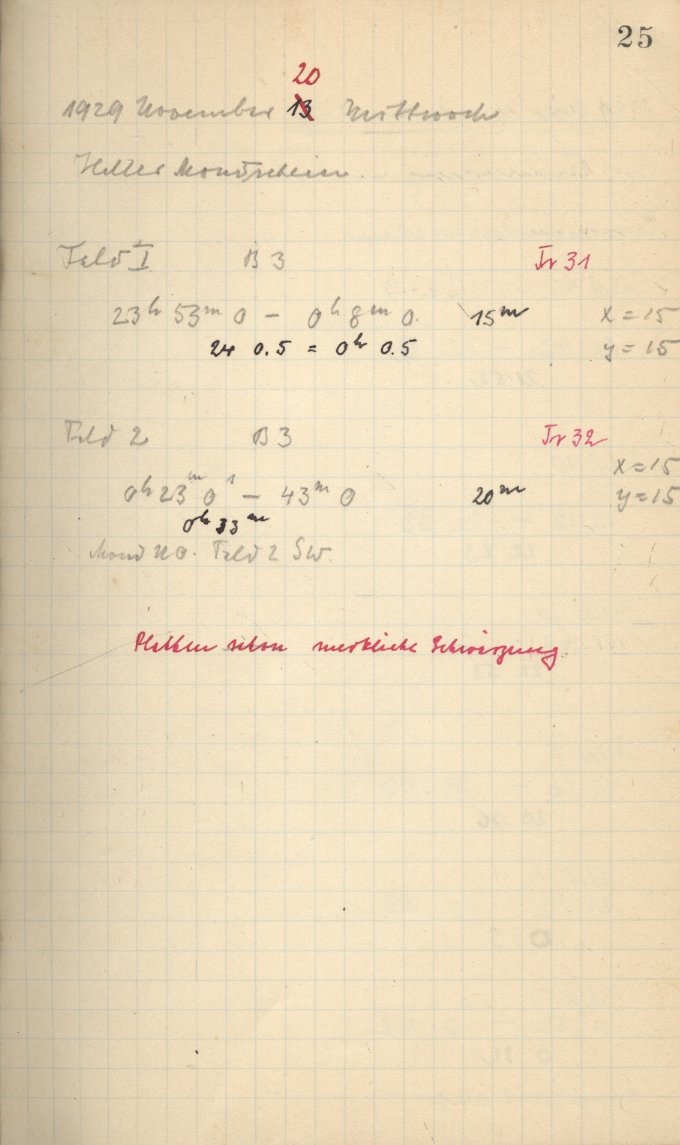 25
20
1929 November 13 Mittwoch
Heller Mondschein.
Feld I B 3 Tr 31
23h 53m 0 – 0h 8m 0. 15m x = 15
24 0.5 = 0h 0.5 y = 15
Feld 2 B 3 Tr 32
x = 15
0h 23m 0s – 43m 0 20m y = 15
0h 33m
Mond NO. Feld 2 SW.
Platten schon merkliche Schwärzung